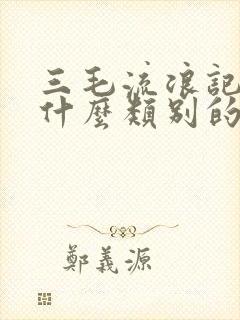 三毛流浪記
什麼類別的
鄭義源